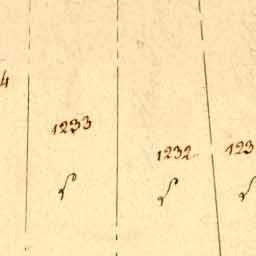 4
1233
1232
123